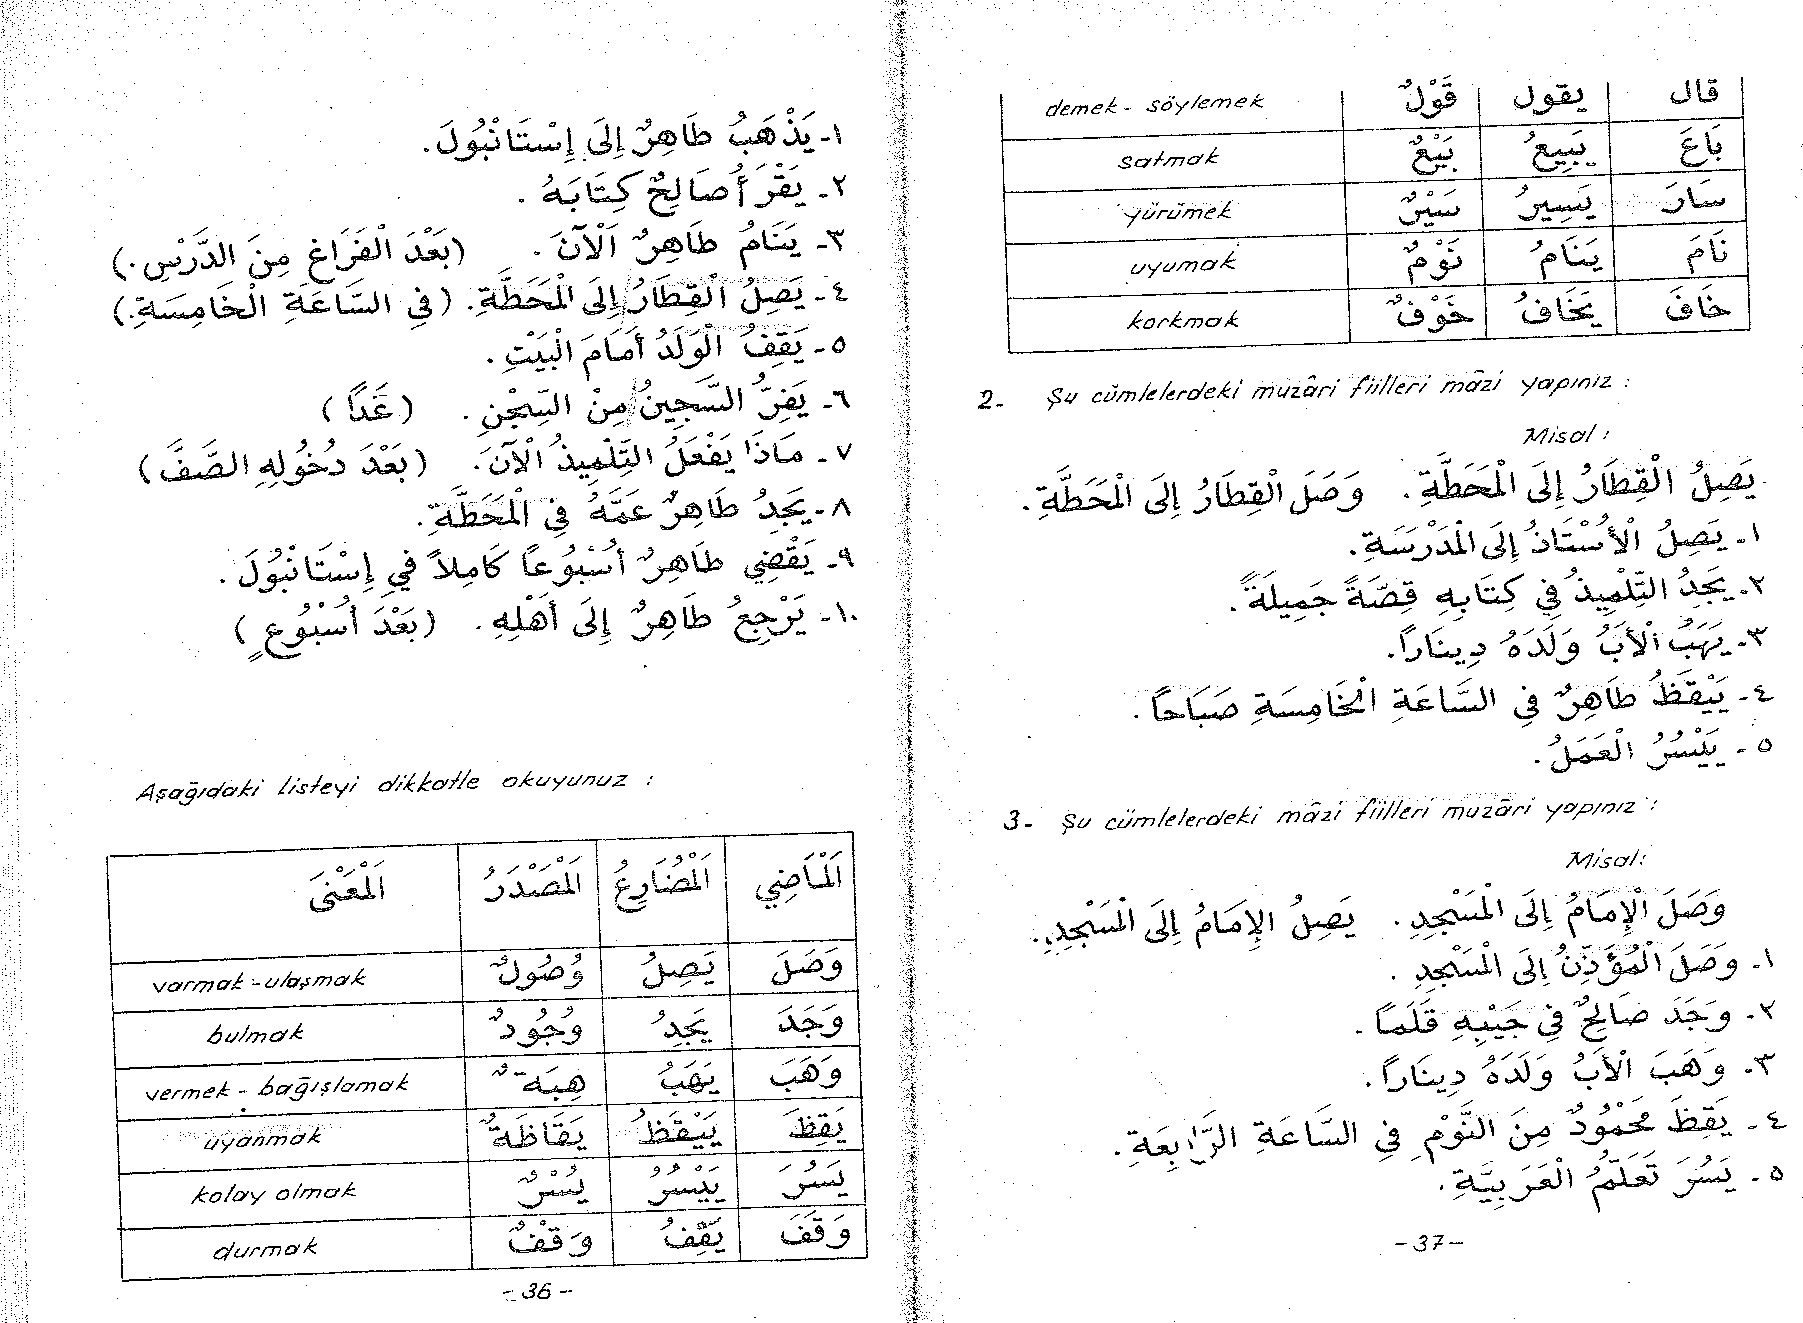 ١- يَذْهَبُ طَاهِرٌ إِلَى إِسْتَانْبُولَ.
٢- يَقْرَأُ صَالِحٌ كِتَابَهُ.
٣- يَنَامُ طَاهِرٌ اَلْآنَ. (بَعْدَ الْفَرَاغِ مِنَ الدَّرْسِ.)
٤- يَصِلُ الْقِطَارُ إِلَى الْمَحَطَّةِ. (فِي السَّاعَةِ الْخَامِسَةِ.)
٥- يَقِفُ الْوَلَدُ أَمَامَ الْبَيْتِ.
٦- يَفِرُّ السَّجِينُ مِنْ السِّجْنِ. (غَدًا)
٧- مَاذَا يَفْعَلُ التِّلْمِيذُ الْآنَ. (بَعْدَ دُخُولِهِ الصَّفَّ)
٨- يَجِدُ طَاهِرٌ عَمَّهُ فِي الْمَحَطَّةِ.
٩- يَقْضِي طَاهِرٌ أُسْبُوعاً كَامِلاً فِي إِسْتَانْبُولَ.
١٠- يَرْجِعُ طَاهِرٌ إِلَى أَهْلِهِ. (بَعْدَ أُسْبُوعٍ)
Aşağıdaki listeyi dikkatle okuyunuz :
اَلْمَاضِي اَلْمُضَارِعُ اَلْمَصْدَرُ اَلْمَعْنَى
وَصَلَ يَصِلُ وُصُولٌ varmak - ulaşmak
وَجَدَ يَجِدُ وُجُودٌ bulmak
وَهَبَ يَهَبُ هِبَةٌ vermek - bağışlamak
يَقِظَ يَيْقَظُ يَقَاظَةٌ uyanmak
يَسُرَ يَيْسُرُ يُسْرٌ kolay olmak
وَقَفَ يَقِفُ وَقْفٌ durmak
- 36 -
قال يقول قَوْلٌ demek - söylemek
بَاعَ يَبِيعُ بَيْعٌ satmak
سَارَ يَسِيرُ سَيْرٌ yürümek
نَامَ يَنَامُ نَوْمٌ uyumak
خَافَ يَخَافُ خَوْفٌ korkmak
2- Şu cümlelerdeki muzâri fiilleri mâzi yapınız :
Misal :
يَصِلُ الْقِطَارُ إِلَى الْمَحَطَّةِ. وَصَلَ الْقِطَارُ إِلَى الْمَحَطَّةِ.
١- يَصِلُ الْأُسْتَاذُ إِلَى الْمَدْرَسَةِ.
٢- يَجِدُ التِّلْمِيذُ فِي كِتَابِهِ قِصَّةً جَمِيلَةً.
٣- يَهَبُ الْأَبُ وَلَدَهُ دِينَاراً.
٤- يَيْقَظُ طَاهِرٌ فِي السَّاعَةِ الْخَامِسَةِ صَبَاحاً.
٥- يَيْسُرُ الْعَمَلُ.
3- Şu cümlelerdeki mâzi fiilleri muzâri yapınız :
Misal :
وَصَلَ الْإِمَامُ إِلَى الْمَسْجِدِ. يَصِلُ الإِمَامُ إِلَى الْمَسْجِدِ.
١- وَصَلَ الْمُؤَذِّنُ إِلَى الْمَسْجِدِ.
٢- وَجَدَ صَالِحٌ فِي جَيْبِهِ قَلَماً.
٣- وَهَبَ الْأَبُ وَلَدَهُ دِينَاراً.
٤- يَقِظَ مَحْمُودٌ مِنَ النَّوْمِ فِي السَّاعَةِ الرَّابِعَةِ.
٥- يَسُرَ تَعَلُّمُ الْعَرَبِيَّةِ.
- 37 -